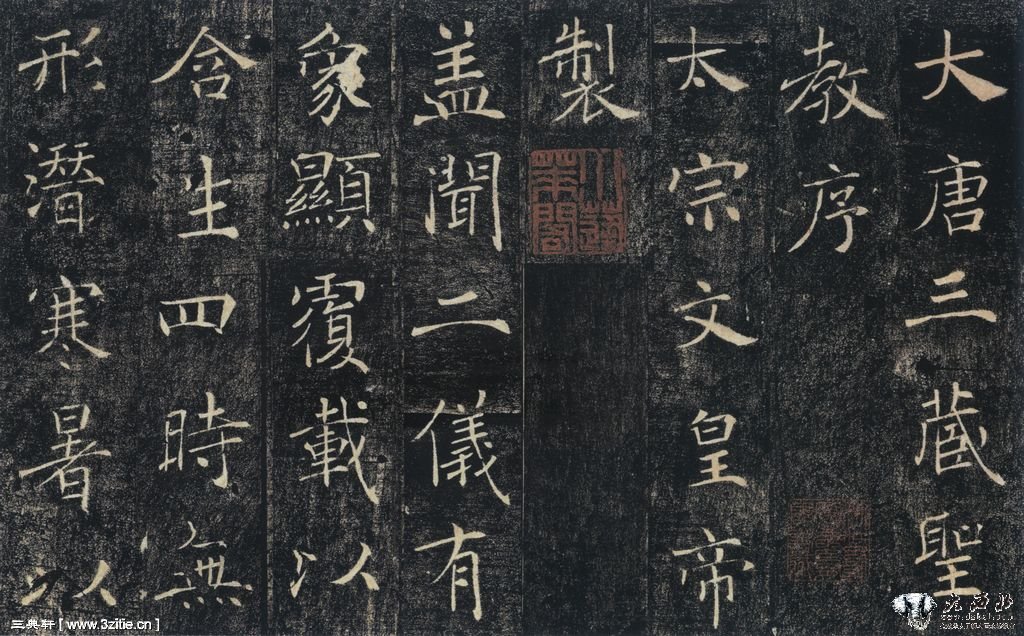 大唐三藏聖
教序
太宗文皇帝
製
盖聞二儀有
象顯覆載以
含生四時無
形潛寒暑以
三典轩[www.3zitie.cn]